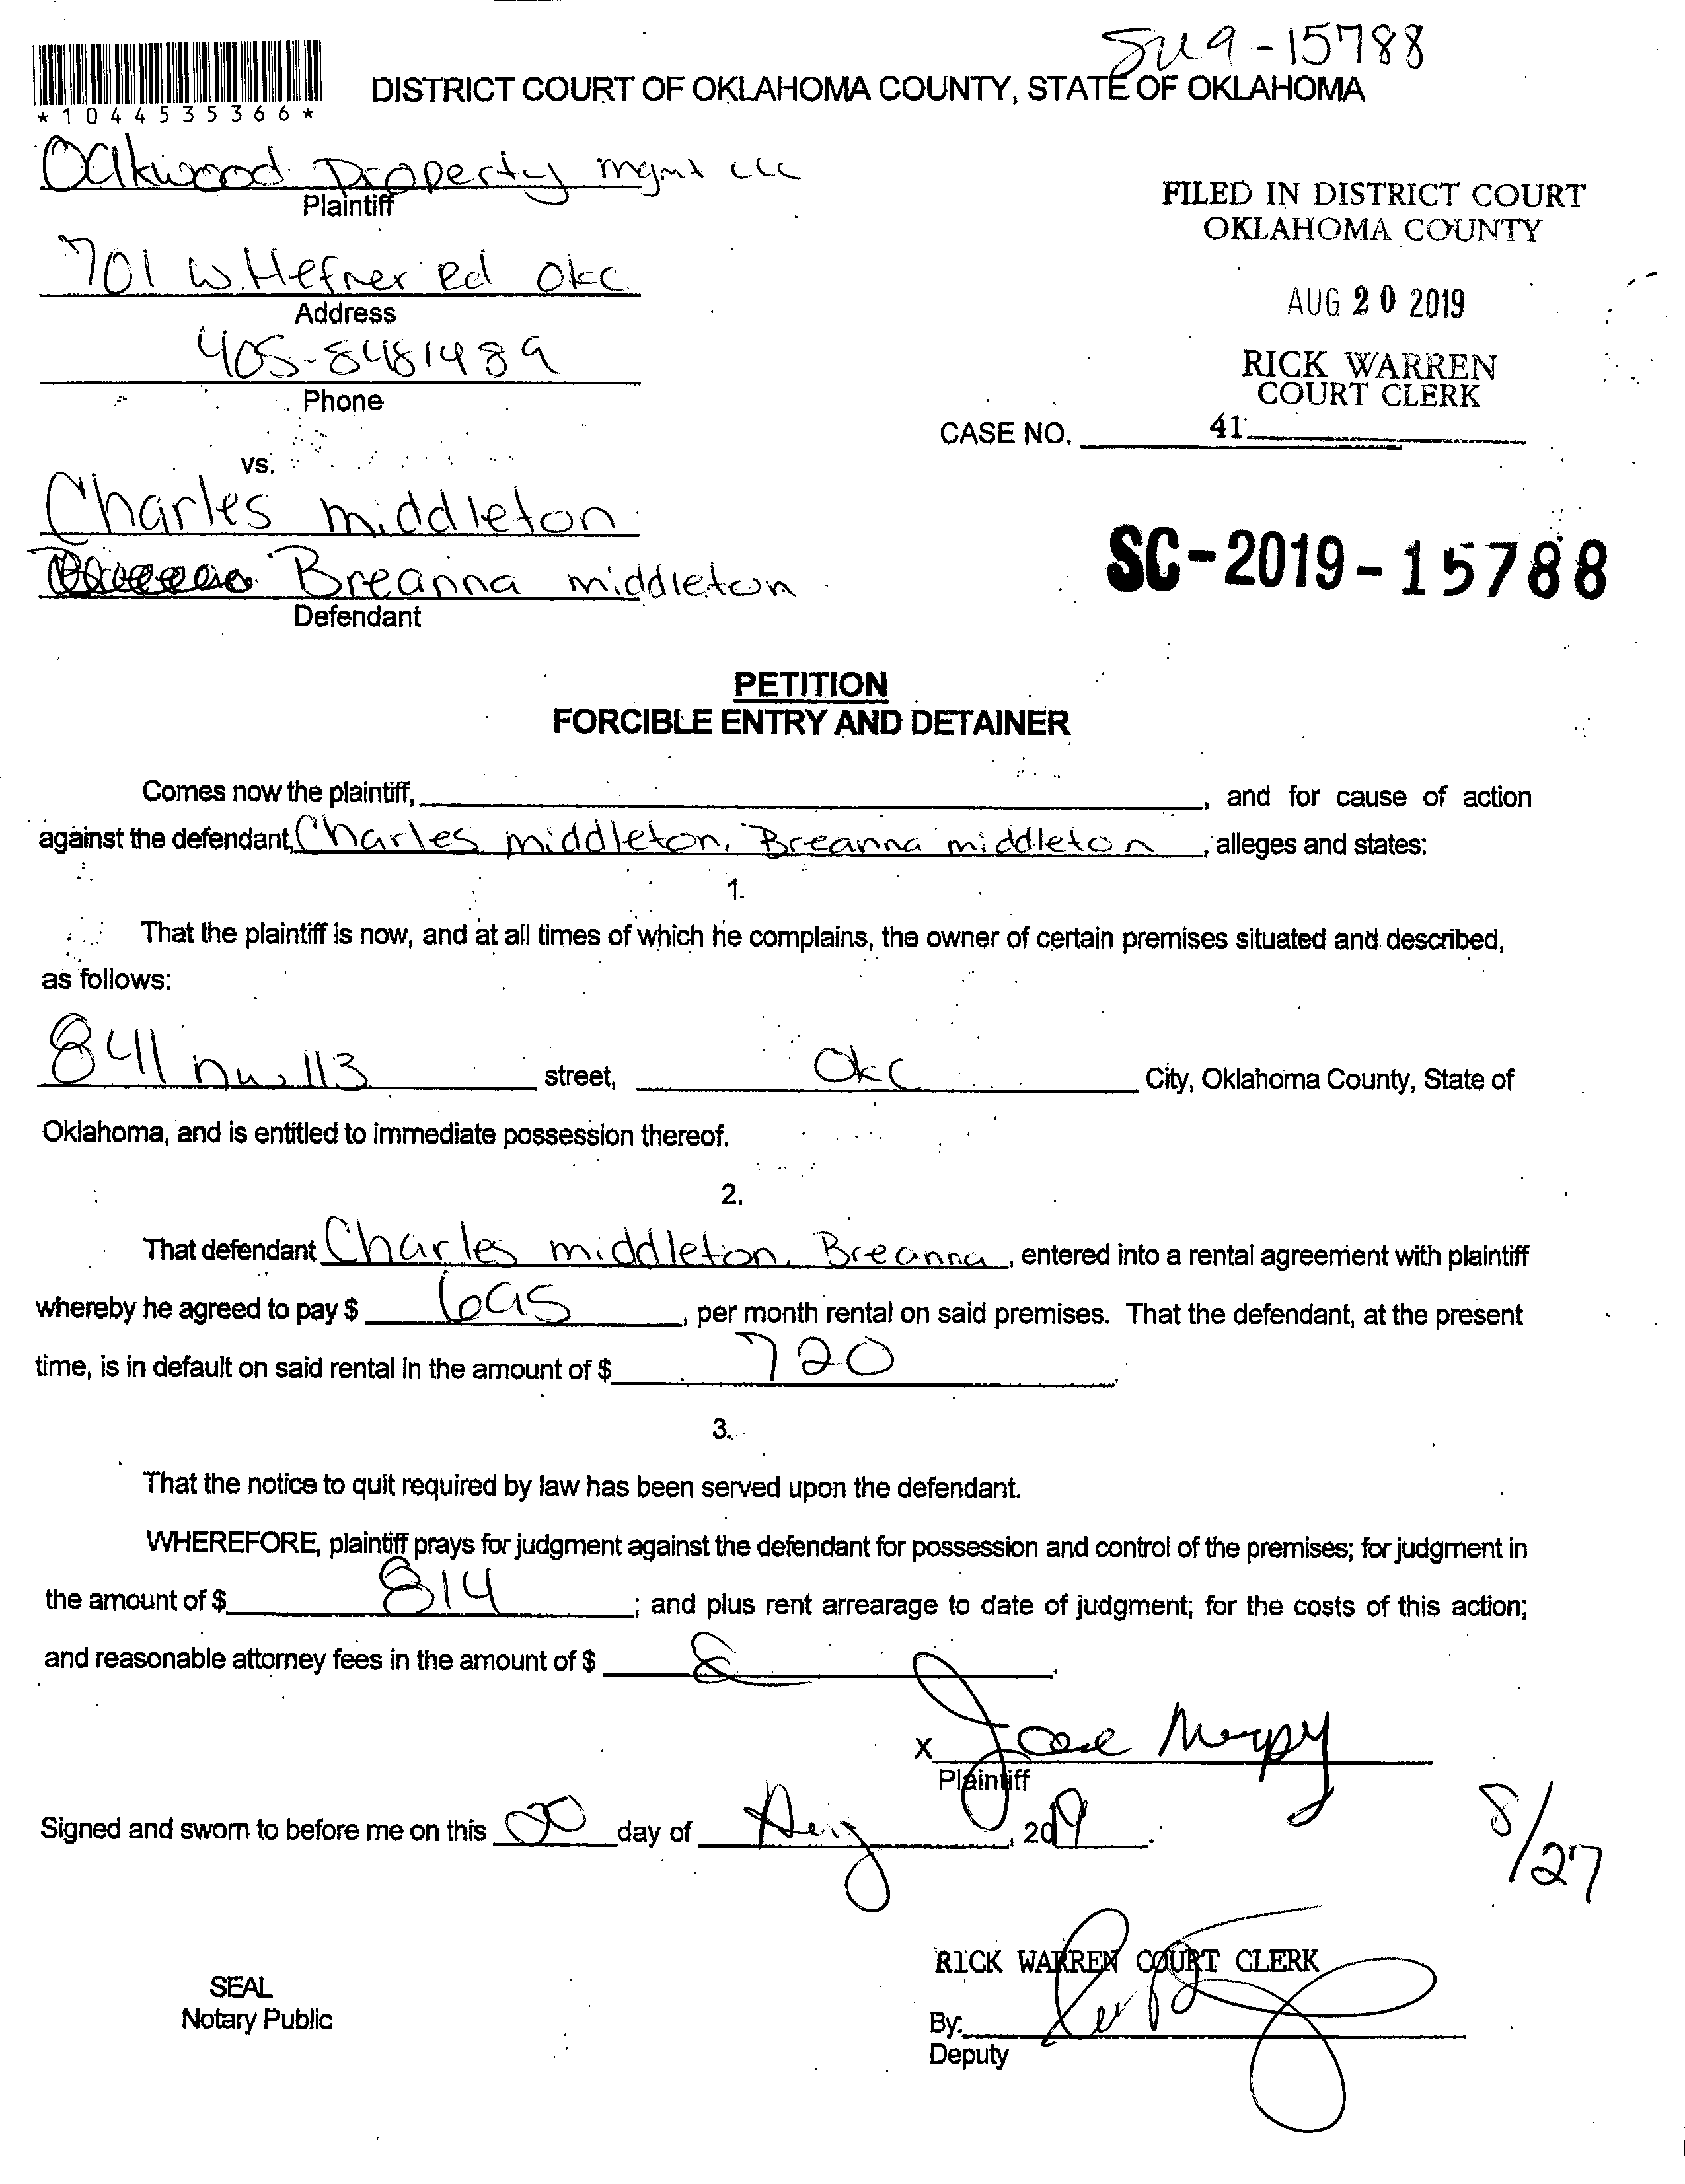 -15788
*1044535366*
DISTRICT COURT OF OKLAHOMA COUNTY, STATE OF OKLAHOMA
Oakwood Property mgmt LLC
Plaintiff
FILED IN DISTRICT COURT
OKLAHOMA COUNTY
701 W. Hefner Rd OKC
Address
AUG 20 2019
405-8481489
Phone
RICK WARREN
COURT CLERK
CASE NO. 41
vs.
Charles middleton
Breanna middleton
Defendant
SC-2019-15788
PETITION
FORCIBLE ENTRY AND DETAINER
Comes now the plaintiff, , and for cause of action
against the defendant, Charles middleton, Breanna middleton, alleges and states:
1.
That the plaintiff is now, and at all times of which he complains, the owner of certain premises situated and described,
as follows:
841 nw 113 street, OKC City, Oklahoma County, State of
Oklahoma, and is entitled to immediate possession thereof.
2.
That defendant Charles middleton, Breanna, entered into a rental agreement with plaintiff
whereby he agreed to pay $ 695, per month rental on said premises. That the defendant, at the present
time, is in default on said rental in the amount of $ 720.
3.
That the notice to quit required by law has been served upon the defendant.
WHEREFORE, plaintiff prays for judgment against the defendant for possession and control of the premises; for judgment in
the amount of $ 814; and plus rent arrearage to date of judgment; for the costs of this action;
and reasonable attorney fees in the amount of $
X
Plaintiff
Signed and sworn to before me on this 20 day of Aug, 2019.
8/27
RICK WARREN COURT CLERK
SEAL
Notary Public
By:
Deputy